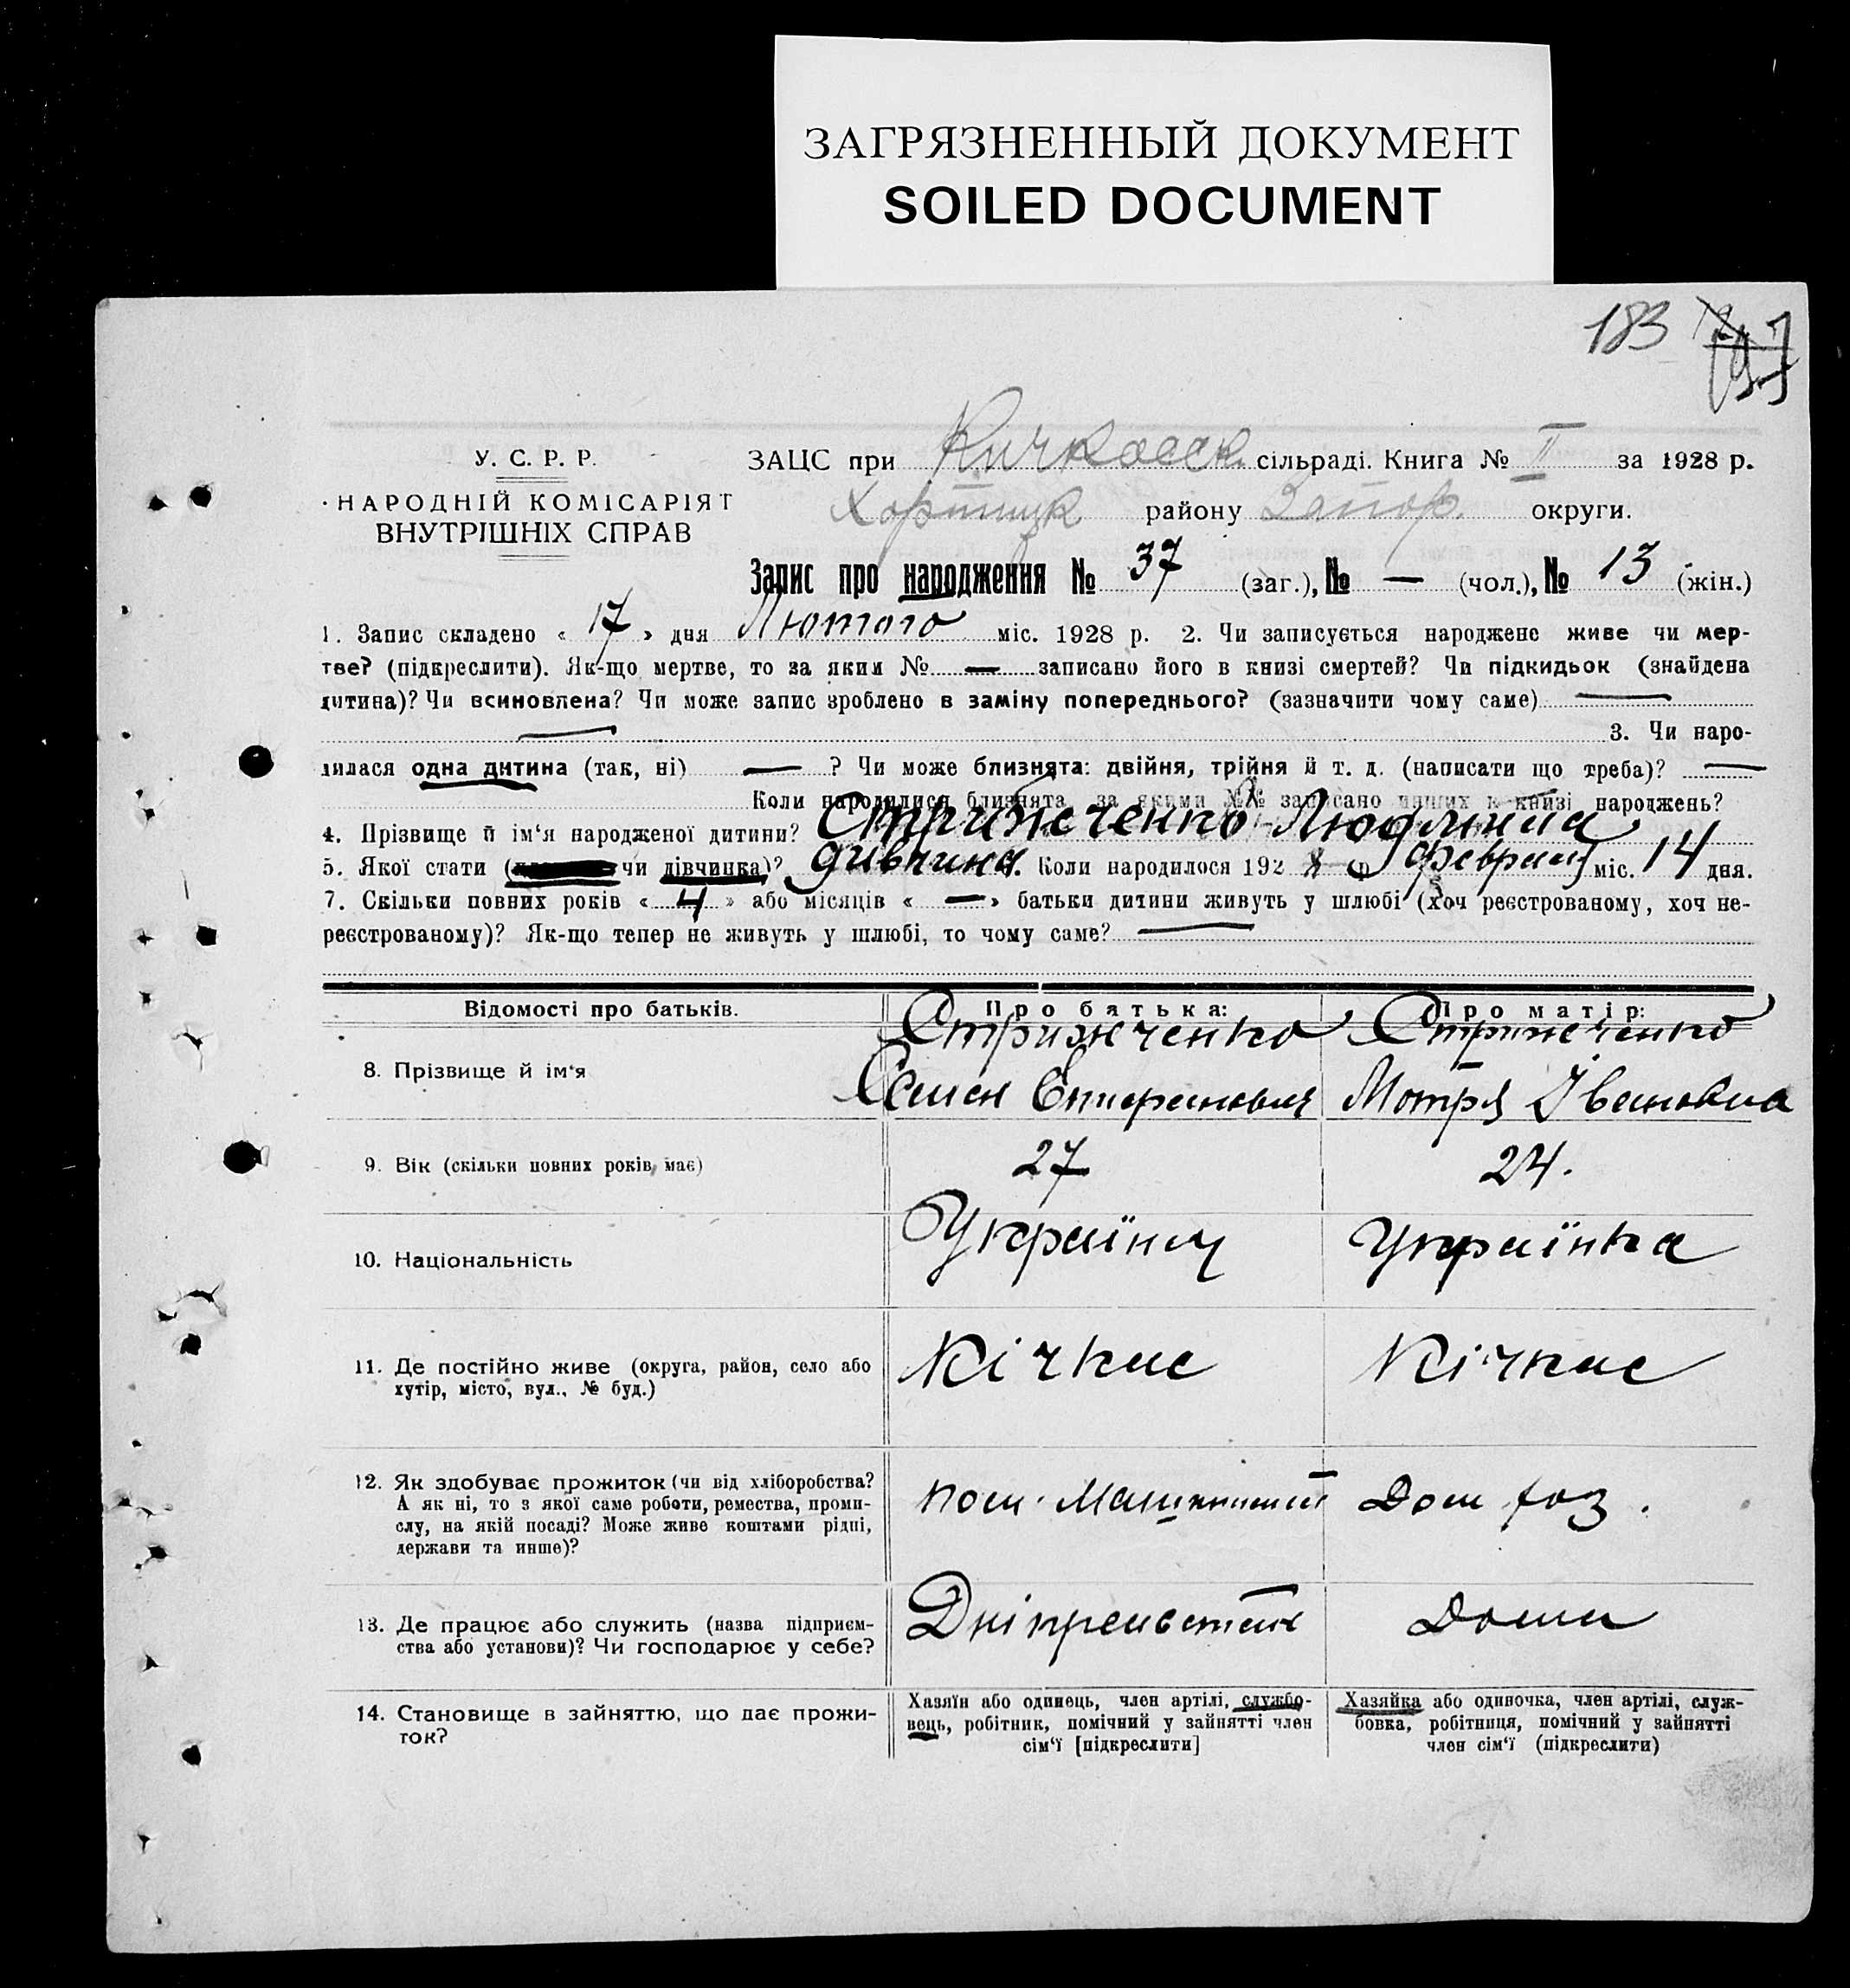 ЗАГРЯЗНЕННЫЙ ДОКУМЕНТ
SOILED DOCUMENT
183
У. С. Р. Р.
НАРОДНІЙ КОМІСАРІЯТ
ВНУТРІШНІХ СПРАВ
ЗАЦС при Кичкасск. сільраді. Книга № II за 1928 р.
Хортицк району Запор. округи.
Запис про народження № 37 (заг.), № — (чол.), № 13 (жін.)
1. Запис складено « 17 » дня Лютого міс. 1928 р. 2. Чи записується народжене живе чи мер-
тве? (підкреслити). Як-що мертве, то за яким № — записано його в книзі смертей? Чи підкидьок (знайдена
дитина)? Чи всиновлена? Чи може запис зроблено в заміну попереднього? (зазначити чому саме) —
— 3. Чи наро-
дилася одна дитина (так, ні) — ? Чи може близнята: двійня, трійня й т. д. (написати що треба)? —
Коли народилися близнята, за якими №№ записано инших в книзі народжень?
4. Прізвище й ім‘я народженої дитини? Стрижеченко Людмила
5. Якої стати ( чи дівчинка)? дивчина. Коли народилося 1928 р февраля міс. 14 дня.
7. Скільки повних років « 4 » або місяців « — » батьки дитини живуть у шлюбі (хоч реєстрованому, хоч не-
реєстрованому)? Як-що тепер не живуть у шлюбі, то чому саме? —
Відомості про батьків. Про батька: Про матір:
8. Прізвище й ім‘я Стрижченко Семен Стрижеченко Мотря Івановна
9. Вік (скільки повних років має) 27 24.
10. Національність Українец Українка
11. Де постійно живе (округа, район, село або Кічкас Кічкас
хутір, місто, вул., № буд.)
12. Як здобуває прожиток (чи від хліборобства? пом. Машиниста Дом хоз.
А як ні, то з якої саме роботи, ремества, проми-
слу, на якій посаді? Може живе коштами рідні,
держави та инше)?
13. Де працює або служить (назва підприєм- Дома
ства або установи)? Чи господарює у себе?
14. Становище в зайняттю, що дає прожи-
ток?
Хазяїн або одинець, член артілі, службо-
вець, робітник, помічний у зайнятті член
сім‘ї [підкреслити]
Хазяйка або одиночка, член артілі, служ-
бовка, робітниця, помічний у зайнятті
член сім‘ї (підкреслити)